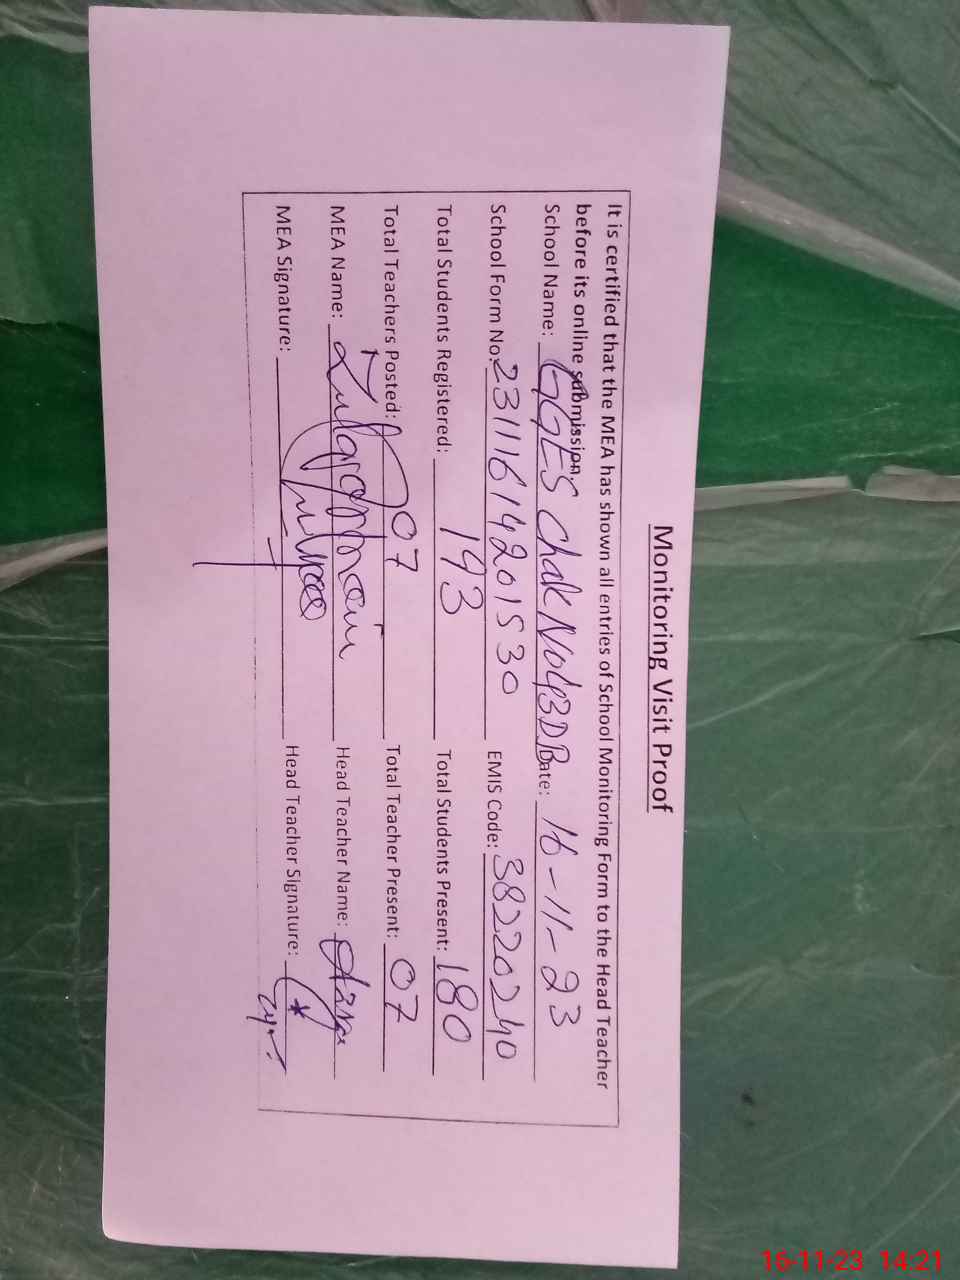 Monitoring Visit Proof
It is certified that the MEA has shown all entries of School Monitoring Form to the Head Teacher
before its online submission
School Name: GGES Chak No 43DB Date: 16-11-23
School Form No: 23111614201530 EMIS Code: 38220240
Total Students Registered: 193 Total Students Present: 180
Total Teachers Posted: 07 Total Teacher Present: 07
MEA Name: Zulqarnain Head Teacher Name:
MEA Signature: Head Teacher Signature:
16-11-23 14:21